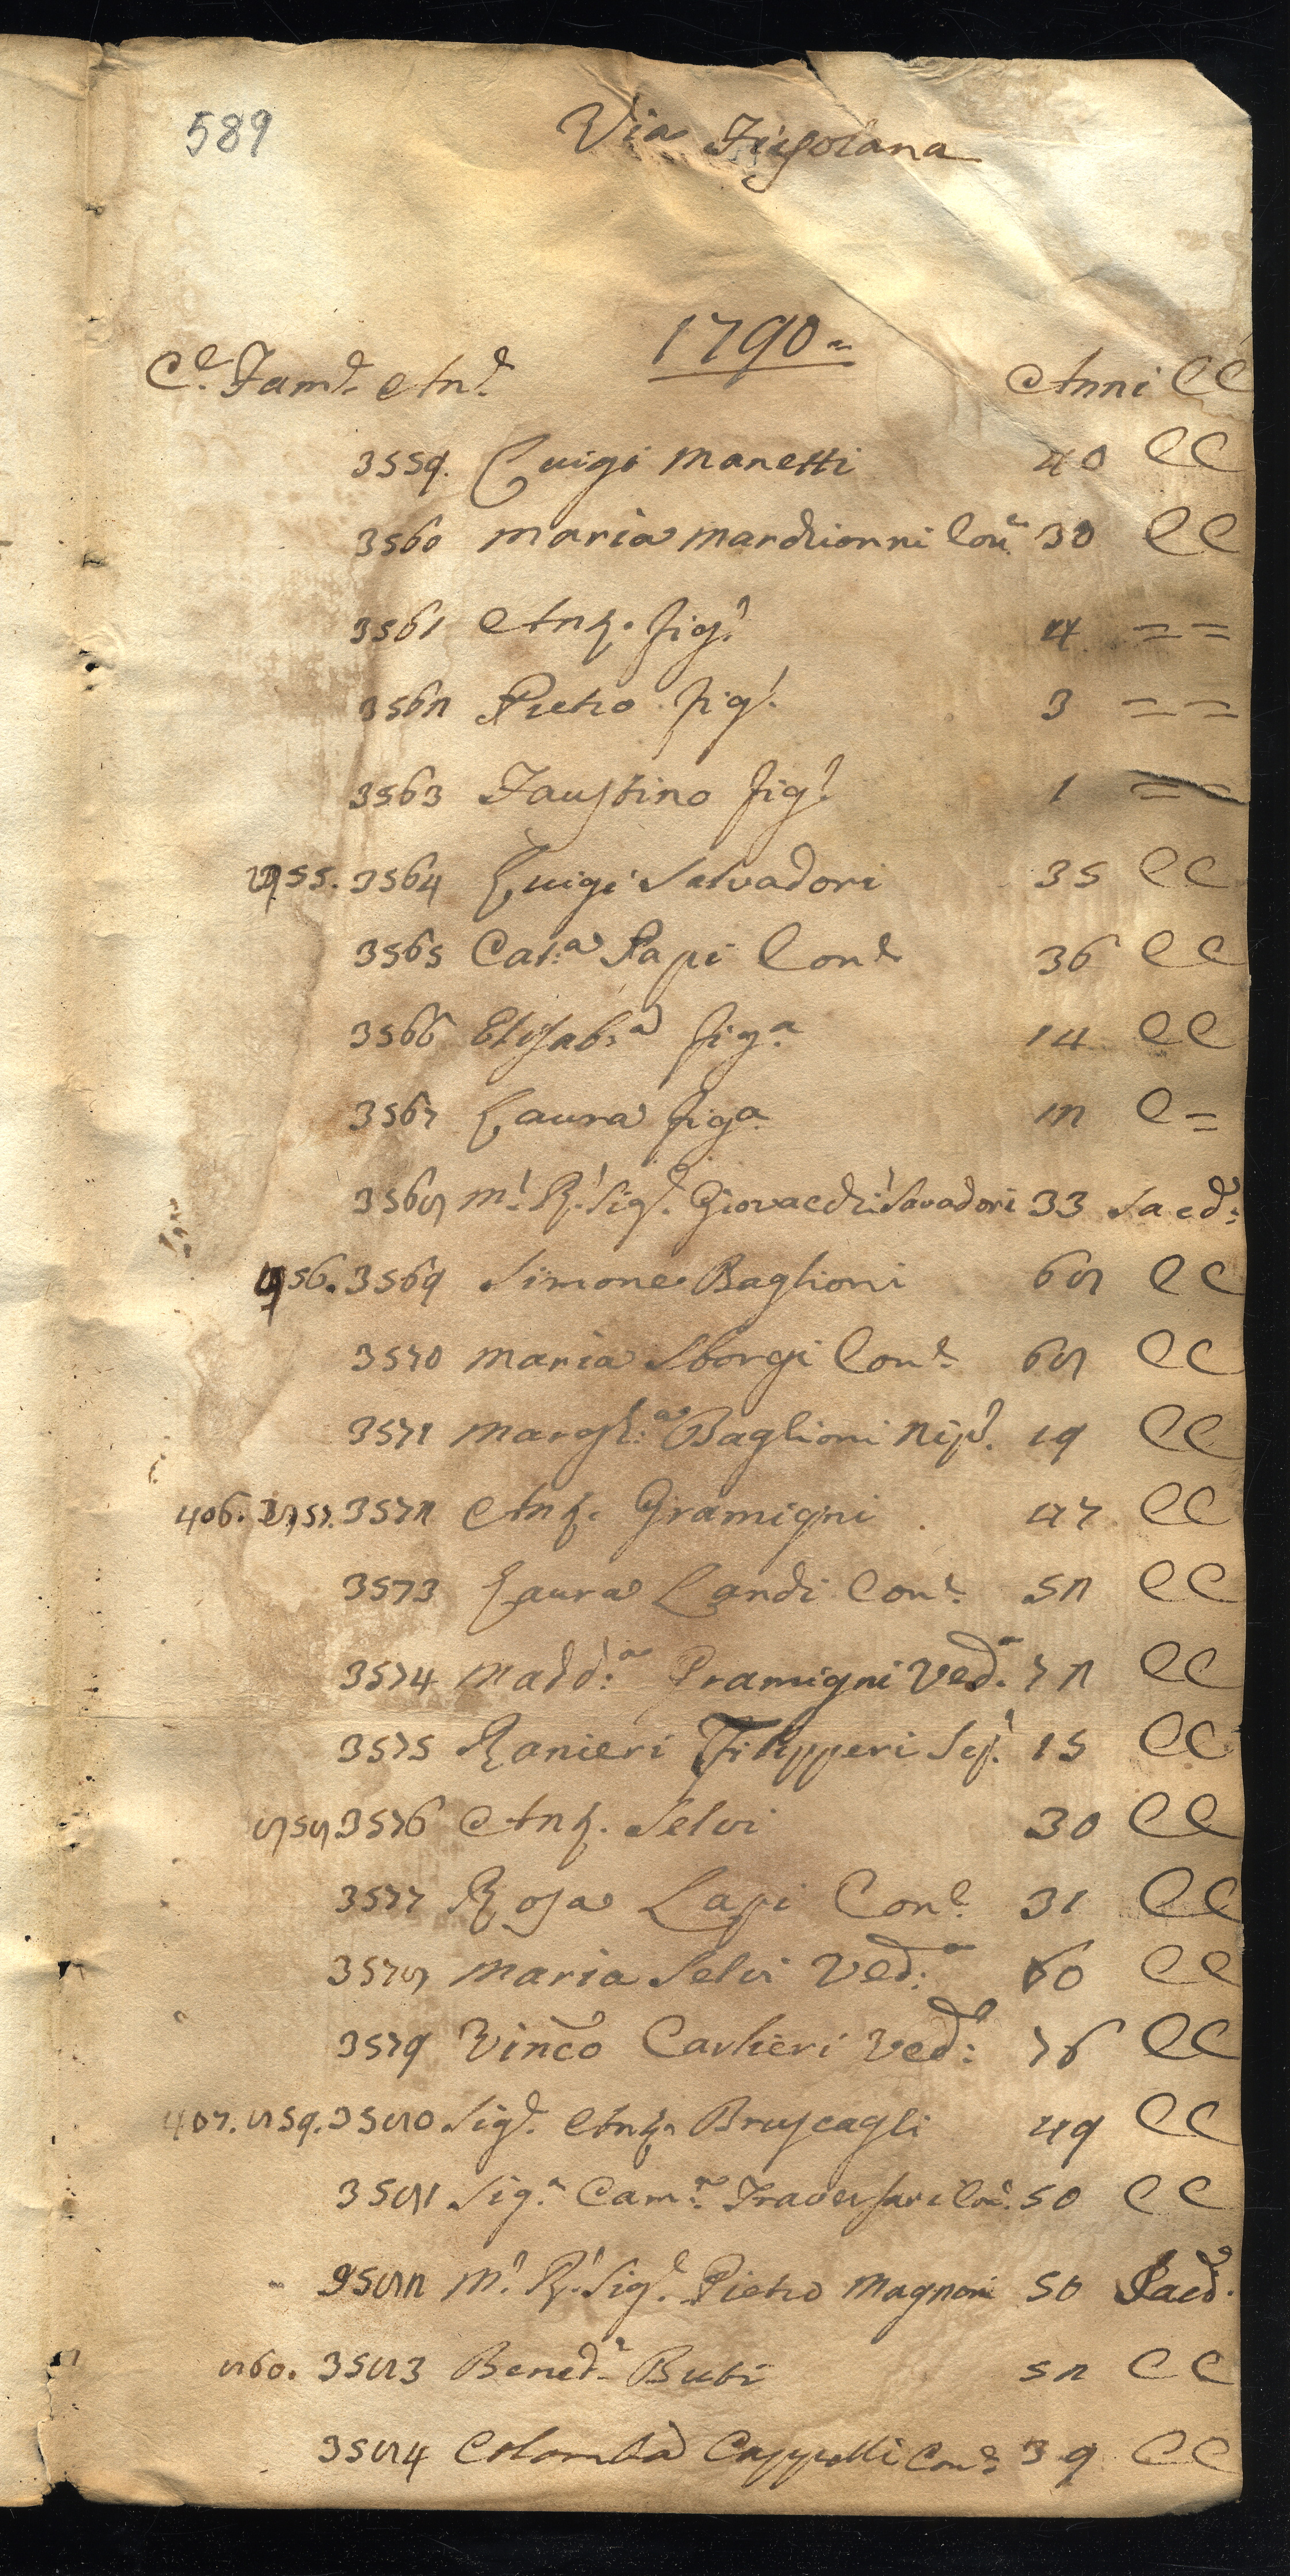 589
Via Fiesolana
1790=
C.e Fam.e An.e Anni CC
3559. Luigi Manetti 40 CC
3560 Maria Marchionni Con.e 30 CC
3561 Ant.o fig.o 4 = =
3562 Pietro fig.o 3 = =
3563 Faustino fig.o 1 = =
855. 3564 Luigi Salvadori 35 CC
3565 Cat.a Papi Con.e 36 CC
3566 Elisab.a fig.a 14 CC
3567 Laura fig.a 12 C =
3568 M.o R.o Sig.e Giovacch.o Savadori 33 Sacd:
856. 3569 Simone Baglioni 68 CC
3570 Maria Sborgi Con.e 68 CC
3571 Margh.a Baglioni Nip.e 19 CC
406. 857. 3572 Ant.o Gramigni 47 CC
3573 Laura Landi Con.e 52 CC
3574 Madd.a Gramigni Ved.a 72 CC
3575 Ranieri Filipperi 15 CC
858 3576 Ant.o Selvi 30 CC
3577 Rosa Lapi Con.e 31 CC
3578 Maria Selvi Ved.a 60 CC
3579 Vinc.o Cavlieri Ved.o 76 CC
407. 859. 3580 Sig.e Ant.o Bruscagli 49 CC
3581 Sig.a Cam.a Traversari Con.e 50 CC
3582 M.o R.o Sig.e Pietro Magnoni 50 Sacd.
860. 3583 Bened.o Bubi 52 CC
3584 Colomba Cappelli Con.e 39 CC